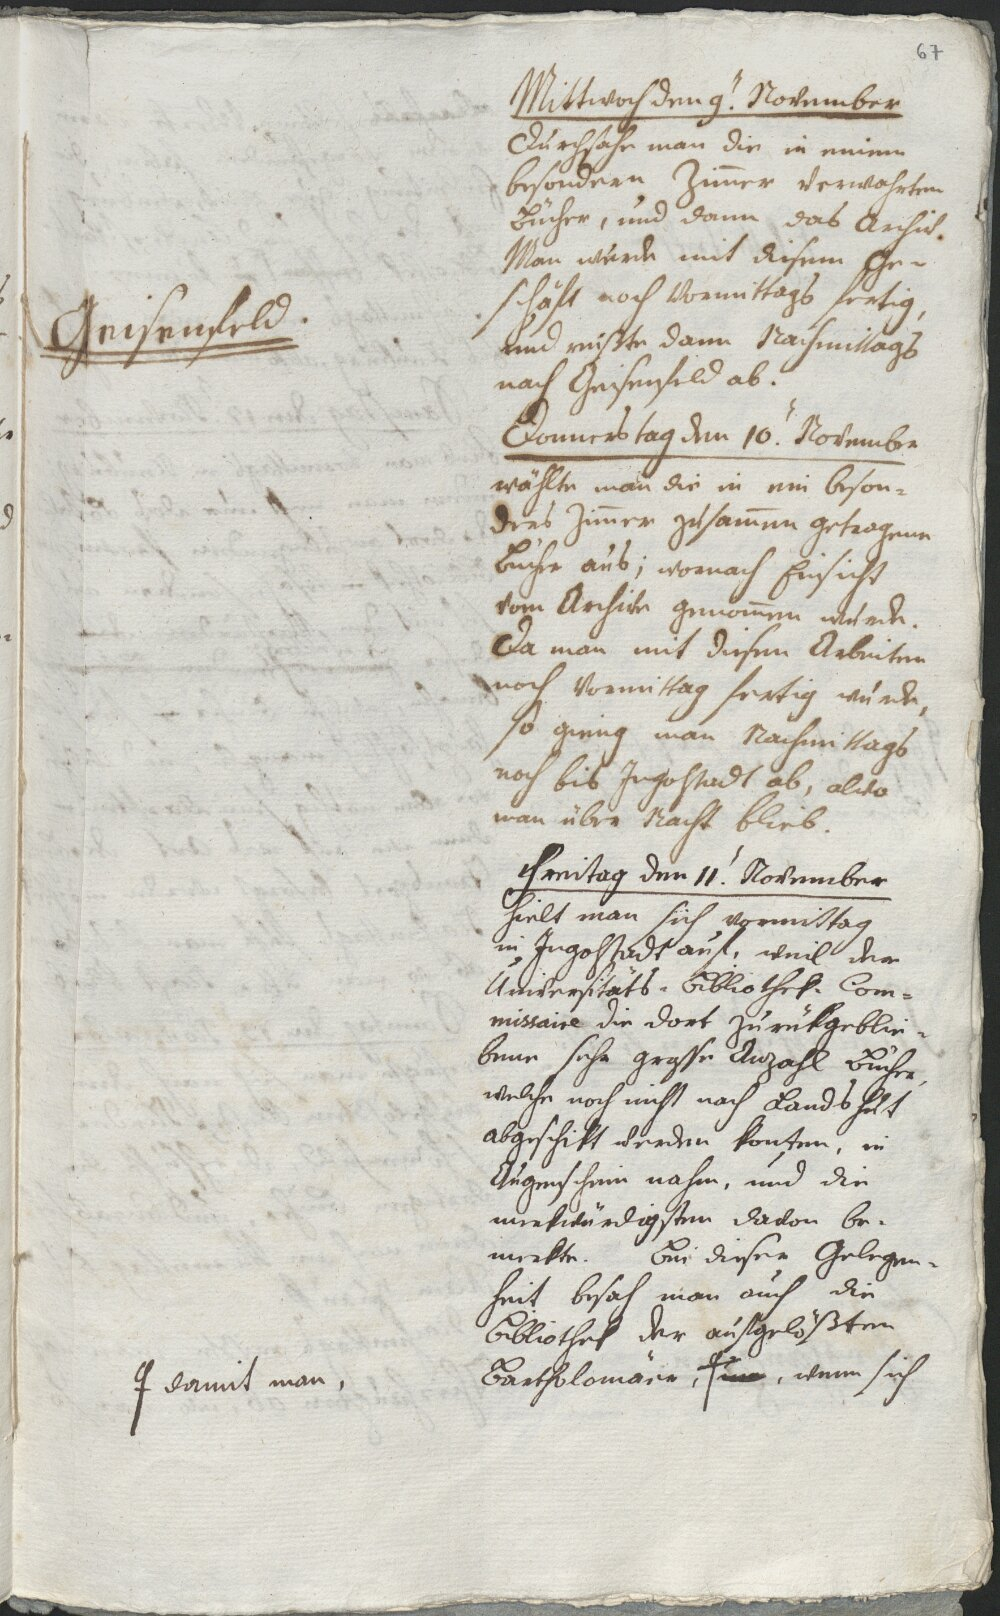 67
Mittwoch den 9.' November
Durchsahe man die in einem
besondern Zimer verwahrten
Bücher, und dann das Archiv.
Man wurde mit disem Ge-
schäft noch Vormittags fertig,
Geisenfeld.
und reißte dann Nachmittags
nach Geisenfeld ab.
Donnerstag den 10.' November
wählte man die in ein beson-
dres Zimer zusamen getragene
Bücher aus; wornach Einsicht
vom Archive genomen wurde.
Da man mit diesen Arbeiten
noch Vormittag fertig wurde,
so gieng man Nachmittags
noch bis Ingolstadt ab, alwo
man über Nacht blieb.
Freitag den 11.' November
hielt man sich vormittag
in Ingolstadt auf, weil der
Universitäts-Bibliothek-Com-
missaire die dort zurükgeblie-
bene sehr grosse Anzahl Bücher,
welche noch nicht nach Landshut
abgeschikt werden konten, in
Augenschein nahm, und die
merkwürdigsten davon be-
merkte. Bei dieser Gelegen-
heit besah man auch die
Bibliothek der aufgelößten
Bartholomäer, , wenn sich
damit man,